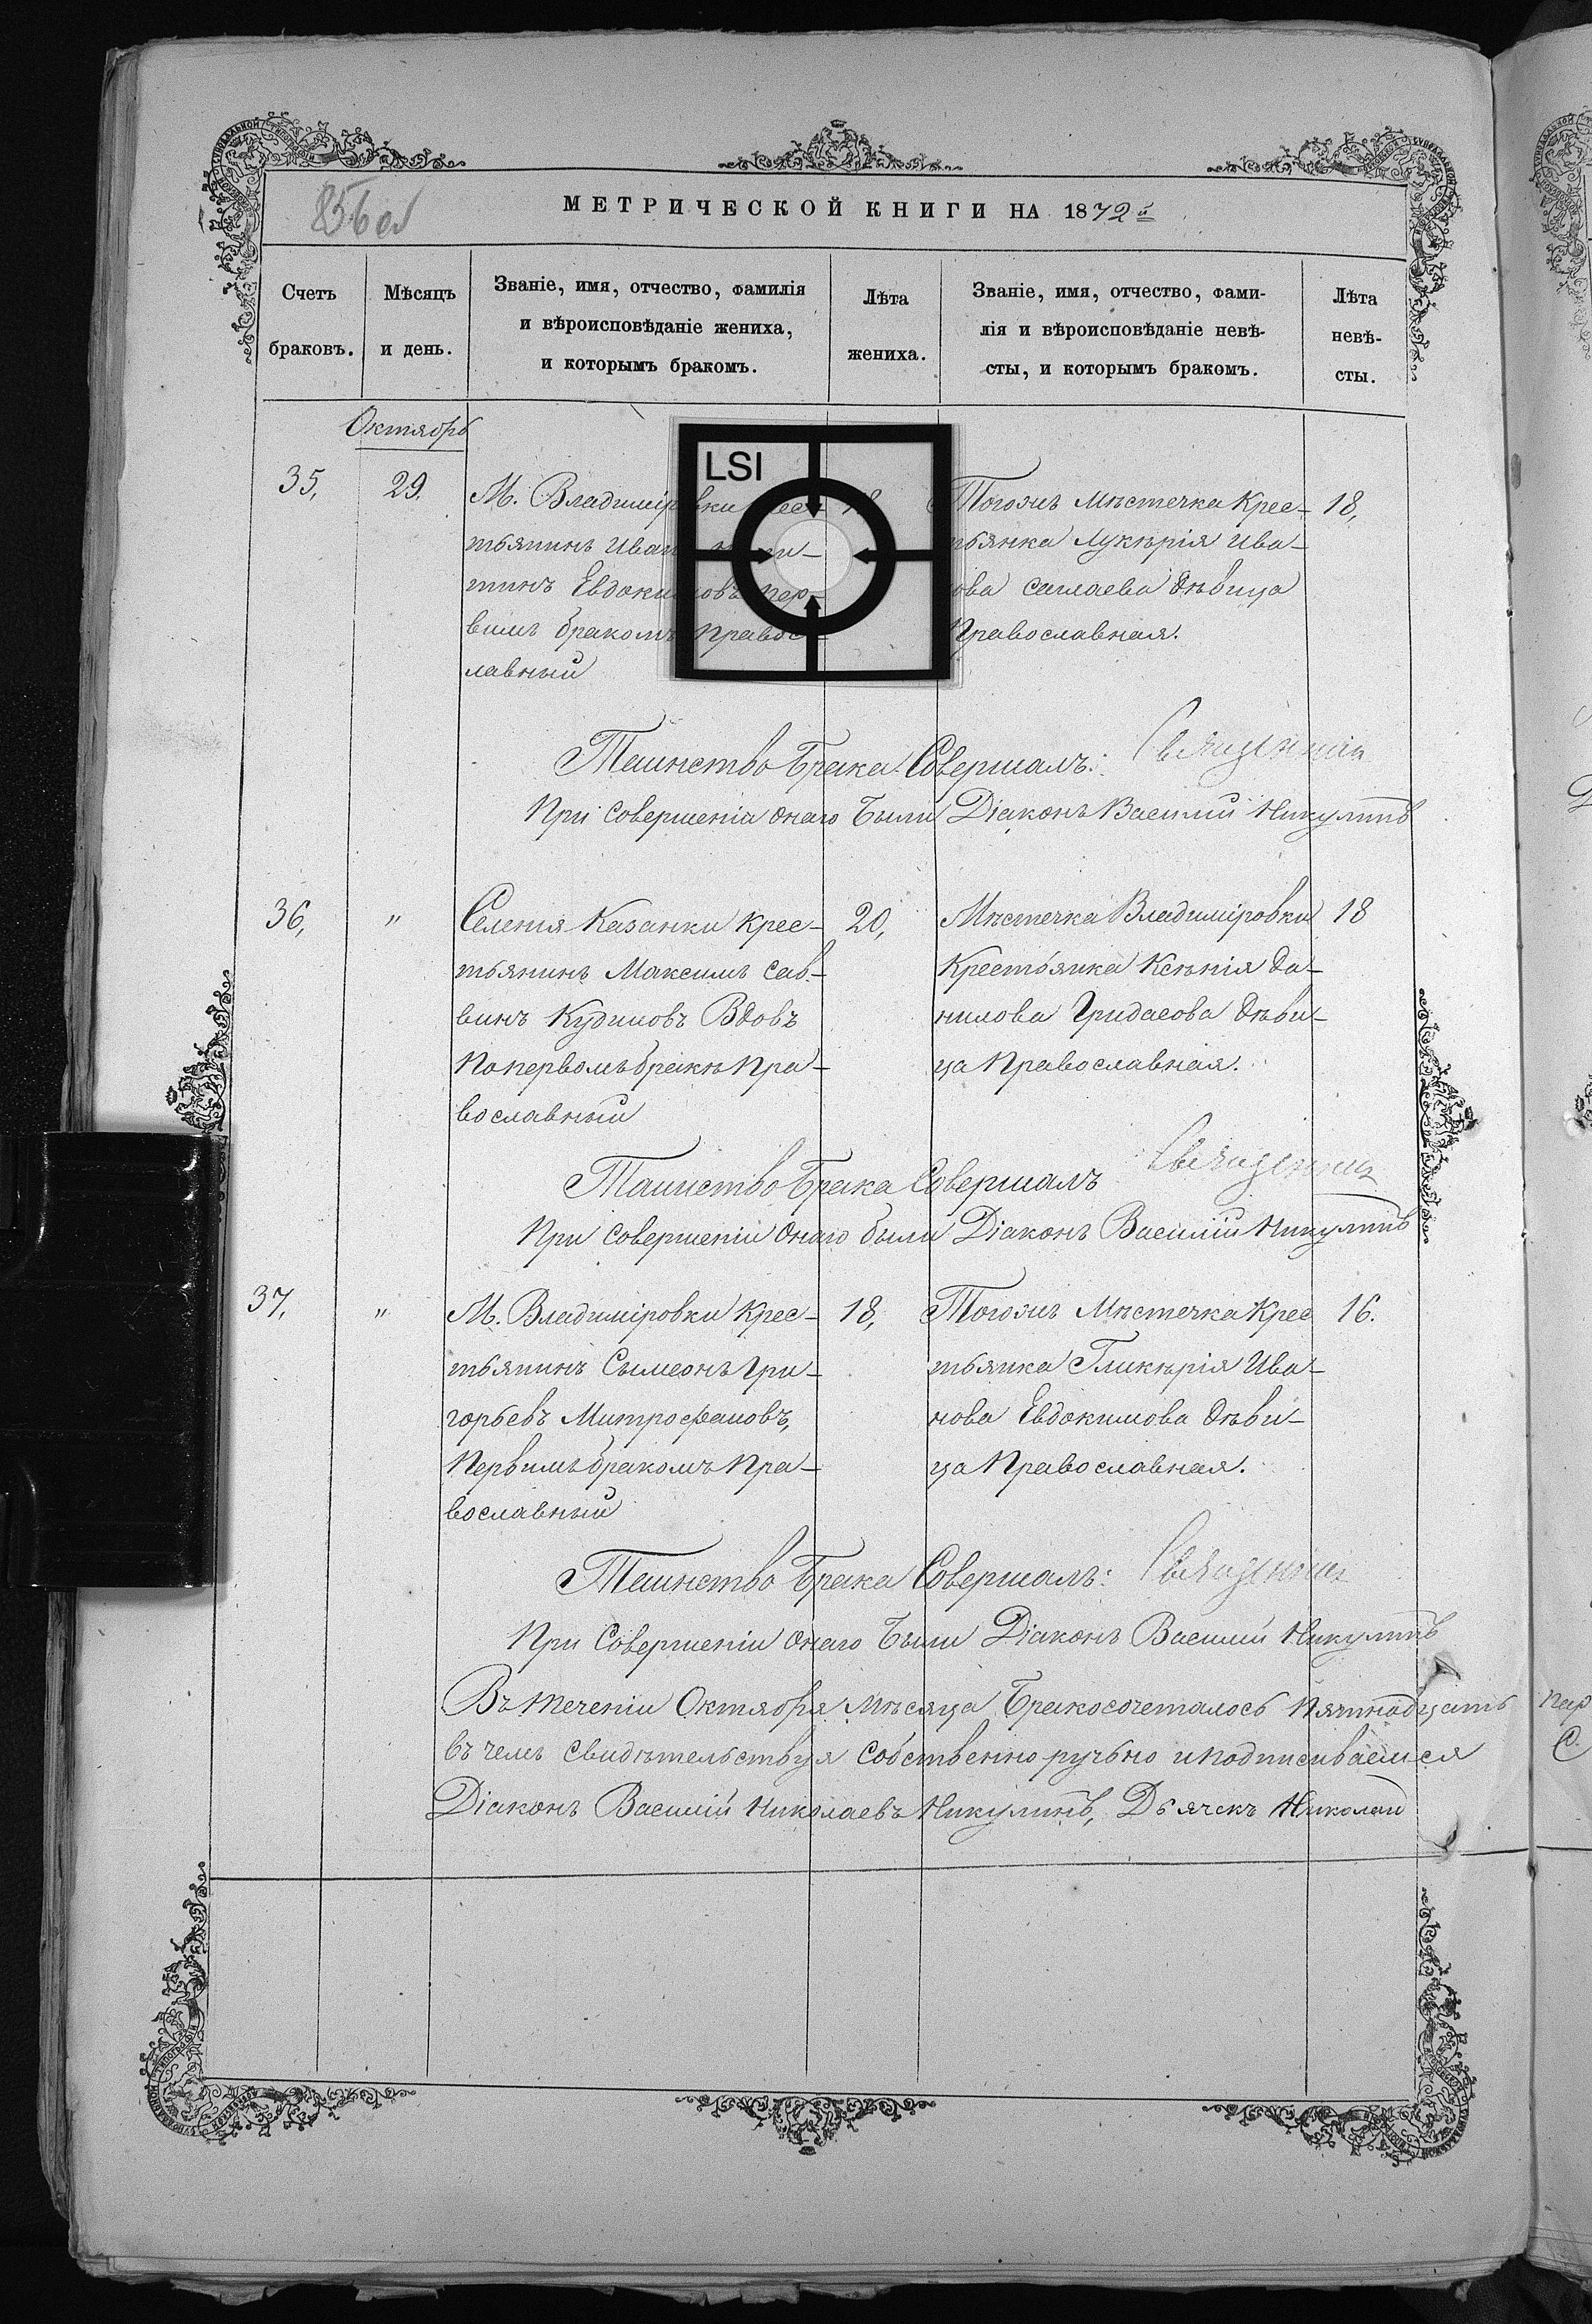 856 об
МЕТРИЧЕСКОЙ КНИГИ НА 1872й
Счетъ браковъ.
Мѣсяцъ и день.
Званіе, имя, отчество, фамилія
и вѣроисповѣданіе жениха,
и которымъ бракомъ.
Лѣта жениха.
Званіе, имя, отчество, фами-
лія и вѣроисповѣданіе невѣ-
сты, и которымъ бракомъ.
Лѣта невѣ-
сты.
Октябрь
LSI
35,
29.
М. Владиміровки
тьянинъ Иван
тинъ Евдокимовъ пер-
вимъ бракомъ Правос-
лавный
18
Тогожъ Мѣстечка Крес-
тьянка Лукѣрія Ива-
нова Самаева дѣвица
Православная.
18,
Таинство Брака Совершалъ: Священник
При Совершеніи онаго Были Діаконъ Василий Никулинъ
36,
"
Селенія Казанки Крес-
тьянинъ Максимъ Сав-
винъ Кудиновъ Вдовъ
По первомъ бракѣ Пра-
вославный
20,
Мѣстечка Владиміровки
Крестьянка Ксѣнія Да-
нилова Гридасова дѣви-
ца Православная.
18
Таинство Брака Совершалъ Священник
При Совершеніи Онаго были Діаконъ Василій Никулинъ
37,
"
М. Владиміровки Крес-
тьянинъ Сымеонъ Гри-
горьевъ Митрофановъ,
Первимъ бракомъ Пра-
вославный
18,
Тогожъ Мѣстечка Крес
тьянка Гликѣрія Ива-
нова Евдокимова дѣви-
ца Православная.
16.
Таинство Брака Совершалъ: Священник
При Совершеніи Онаго Были Діаконъ Василий Никулинъ
Въ теченіи Октября мѣсяца Бракосочеталось Пятнадцать пар
въ чемъ свидѣтельствуя Собственно ручьно и подписиваемся С.
Діаконъ Василій Николаевъ Никулинъ, Дьячекъ Николай